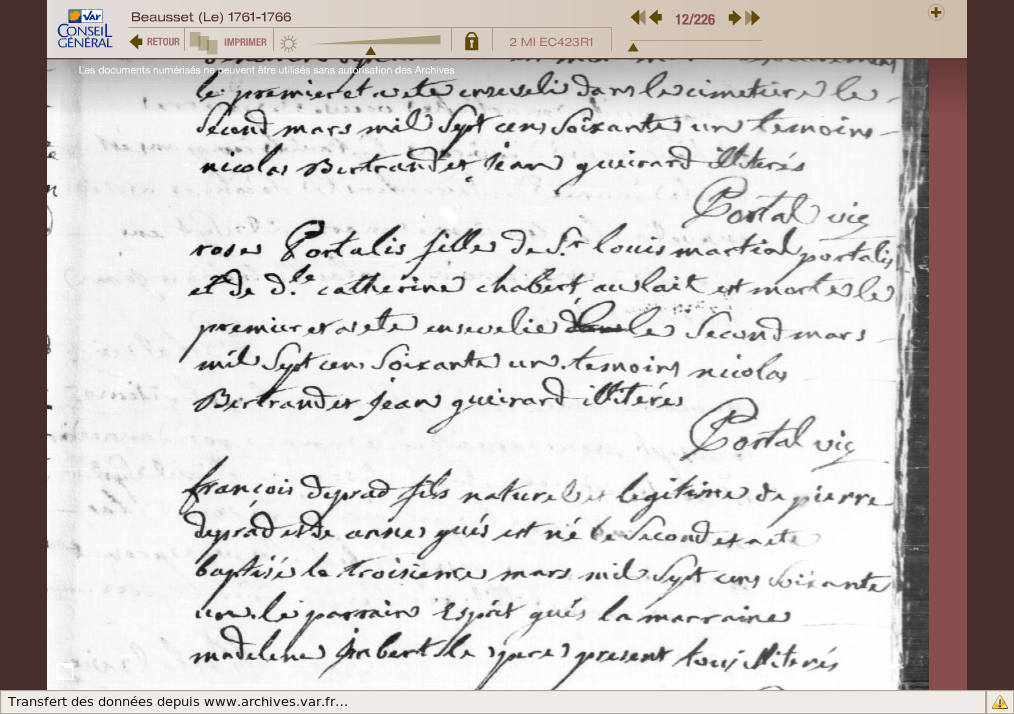 Beausset (Le) 1761-1766
12/226
VAR
CONSEIL
GÉNÉRAL
RETOUR
IMPRIMER
2 MI EC423R1
Les documents numérisés ne peuvent être utilisés sans autorisation des Archives
le premier et a ete enseveli dans le cimetiere le
second mars mil sept cens soixante un temoins
nicolas Bertrand et jean gueirard illiterés
Portal vic
rose Portalis fille de Sr louis martial portalis
et de d.lle catherine chabert au lait est morte le
premier et a ete ensevelie le second mars
mil sept cens soixante un. temoins nicolas
Bertrand et jean gueirard illiterés
Portal vic
françois deprad fils naturel et legitime de pierre
deprad et de anne gués est né le second et a ete
baptisé le troisieme mars mil sept cens soixante
un. le parrain Esprit gués la marraine
madelene jmbert le pere present tous illiterés
Transfert des données depuis www.archives.var.fr...